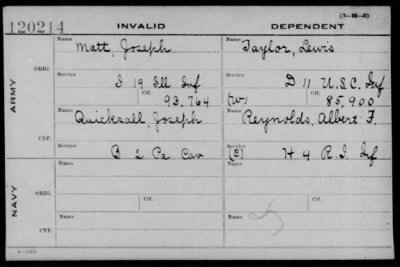 (3-H-5)
120214 INVALID DEPENDENT
Name Name
Matt, Joseph Taylor, Lewis
ORIG. Service Service
I 19 Ill Inf D 11 U.S.C. Inf
Ctf. Ctf.
93,764 (W) 85,900
ARMY
Name Name
Quicksall, Joseph Reynolds, Albert F.
CTF. Service Service
B 2 Pa Cav (C) H 4 R.I. Inf
Name Ctf. Name Ctf.
ORIG. Service Service
NAVY
Name Name
CTF. Service Service